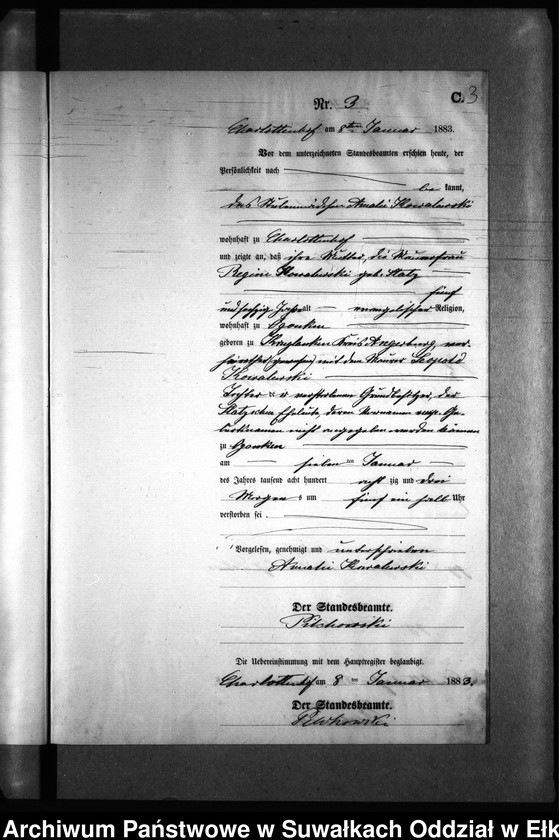 C. 3
Nr. 3
Charlottenhof am 8ten Januar 1883.
Vor dem unterzeichneten Standesbeamten erschien heute, der
Persönlichkeit nach
be kannt,
das Amalie Kowalewski
wohnhaft zu Charlottenhof
und zeigte an, daß ihre Mutter, die Maurerfrau
Regine Kowalewski geb. Statz
fünf
und sechzig Jahre alt evangelischer Religion,
wohnhaft zu Czonken
geboren zu Kruglanken Kreis Angerburg, ver-
heirathet (gewesen) mit dem Maurer Leopold
Kowalewski
Tochter der verstorbenen Grundbesitzer, der
Statzschen Eheleute, deren Vornamen resp. Ge-
burtsnamen nicht angegeben werden können
zu Czonken
am sieben ten Januar
des Jahres tausend acht hundert acht zig und drei
Morgen s um fünf ein halb Uhr
verstorben sei
Vorgelesen, genehmigt und unterschrieben
Amalie Kowalewski
Der Standesbeamte.
Die Uebereinstimmung mit dem Hauptregister beglaubigt.
Charlottenhof am 8 ten Januar 1883.
Der Standesbeamte.
Archiwum Państwowe w Suwałkach Oddział w Ełk